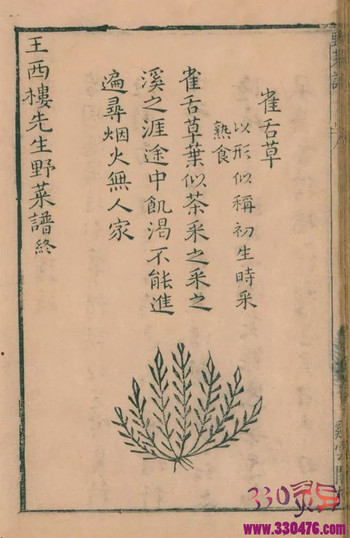 雀舌草
以形似稱初生時采
熟食
雀舌草葉似茶采之采之
溪之涯途中飢渴不能進
遍尋烟火無人家
王西樓先生野菜譜終
330
www.330476.com